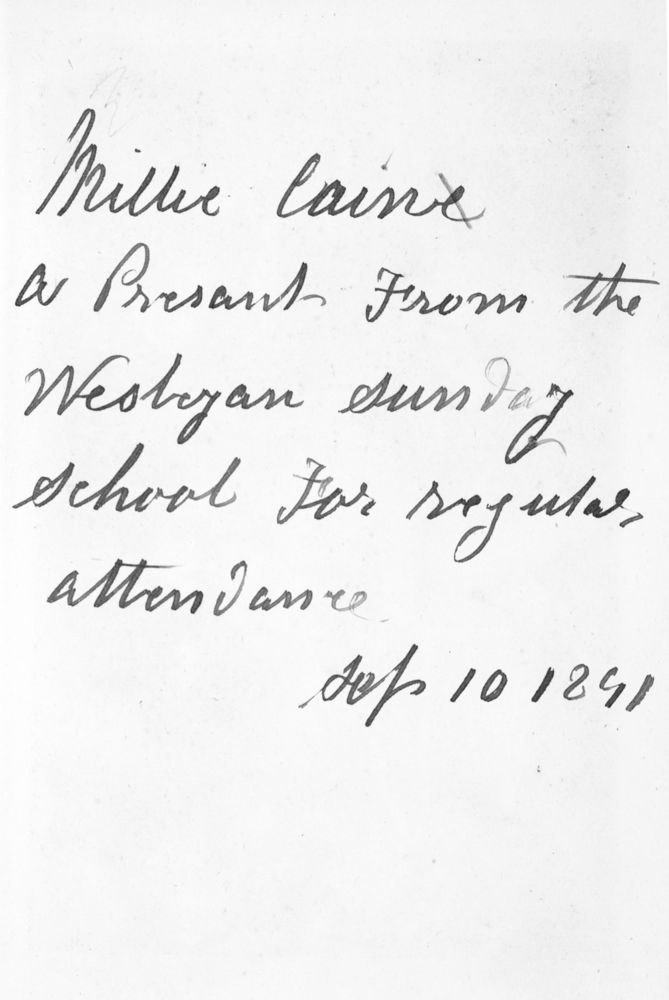 Millie Caine
a Presant From the
Wesleyan sunday
school For regular
attendance
Sep 10 1891